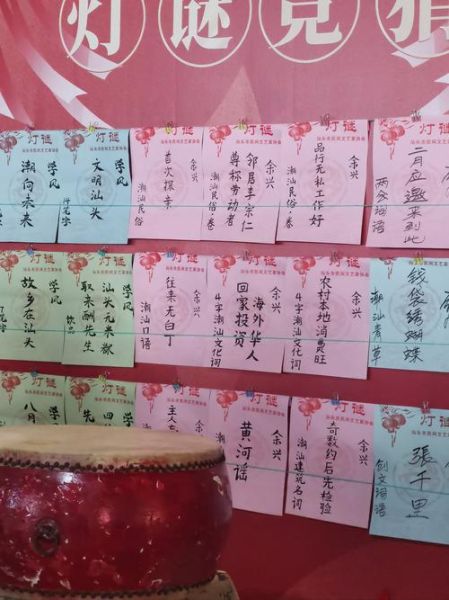 灯谜竞猜
灯谜
学风
潮向未来
行花字
灯谜
学风
文明汕头
灯谜
余兴
首次探亲
潮汕民俗
灯谜
余兴
邻居李宗仁
尊称劳动者
潮汕民俗·卷
灯谜
余兴
品行无私工作好
潮汕民俗·卷
二月应邀来到此
两会词语
学风
故乡在汕头
学风
汕头无米粮
取来酬先生
饮品
余兴
往来无白丁
潮汕口语
余兴
海外华人
回家投资
4字潮汕文化词
余兴
农村本地消费旺
4字潮汕文化词
钱袋绣蝴蝶
潮汕青草
灯谜
八月
灯谜
灯谜
余兴
灯谜
余兴
黄河谣
灯谜
余兴
奇数约后先检验
潮汕建筑名词
余兴
張千里
创文词语